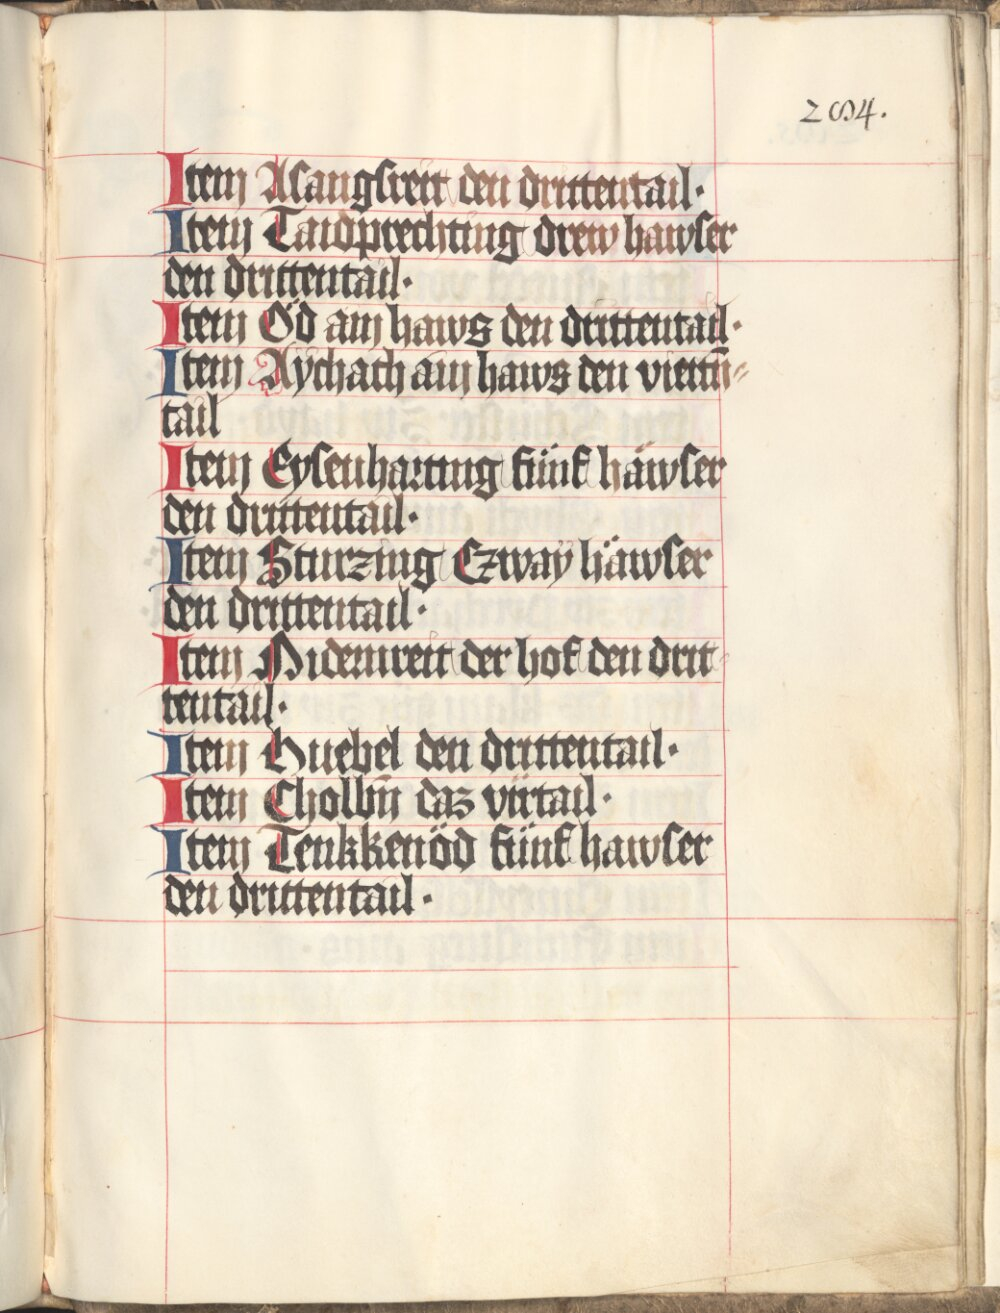 204.
Item Asangsreit den drittentail·
Item Taidprechting drew hawser
den drittentail·
Item Öd ain haws den drittentail·
Item Aÿchach ain haws den viertn̄-
tail
Item Eysenharting fünf häwser
den drittentail·
Item Sturzing Czwaÿ häwser
den drittentail·
Item Nidernreit der hof den drit-
tentail·
Item Huebel den drittentail·
Item Cholbn̄ daz virtail·
Item Tenkkenöd fünf hawser
den drittentail·